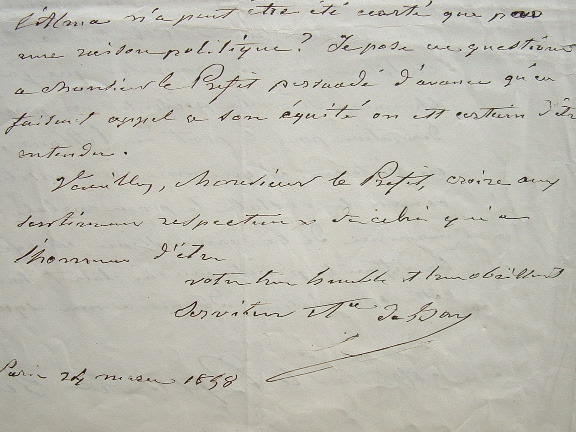 l'Alma n'a peut être été écarté que pour
une raison politique? Je pose ces questions
a Monsieur le Prefet persuadé d'avance qu'en
faisant appel a son équité on est certain d'être
entendu.
Veuillez, Monsieur le Prefet, croire aux
sentimens respectueux de celui qui a
l'honneur d'être
votre tres humble et tres obéissant
Serviteur
Paris 24 mars 1858